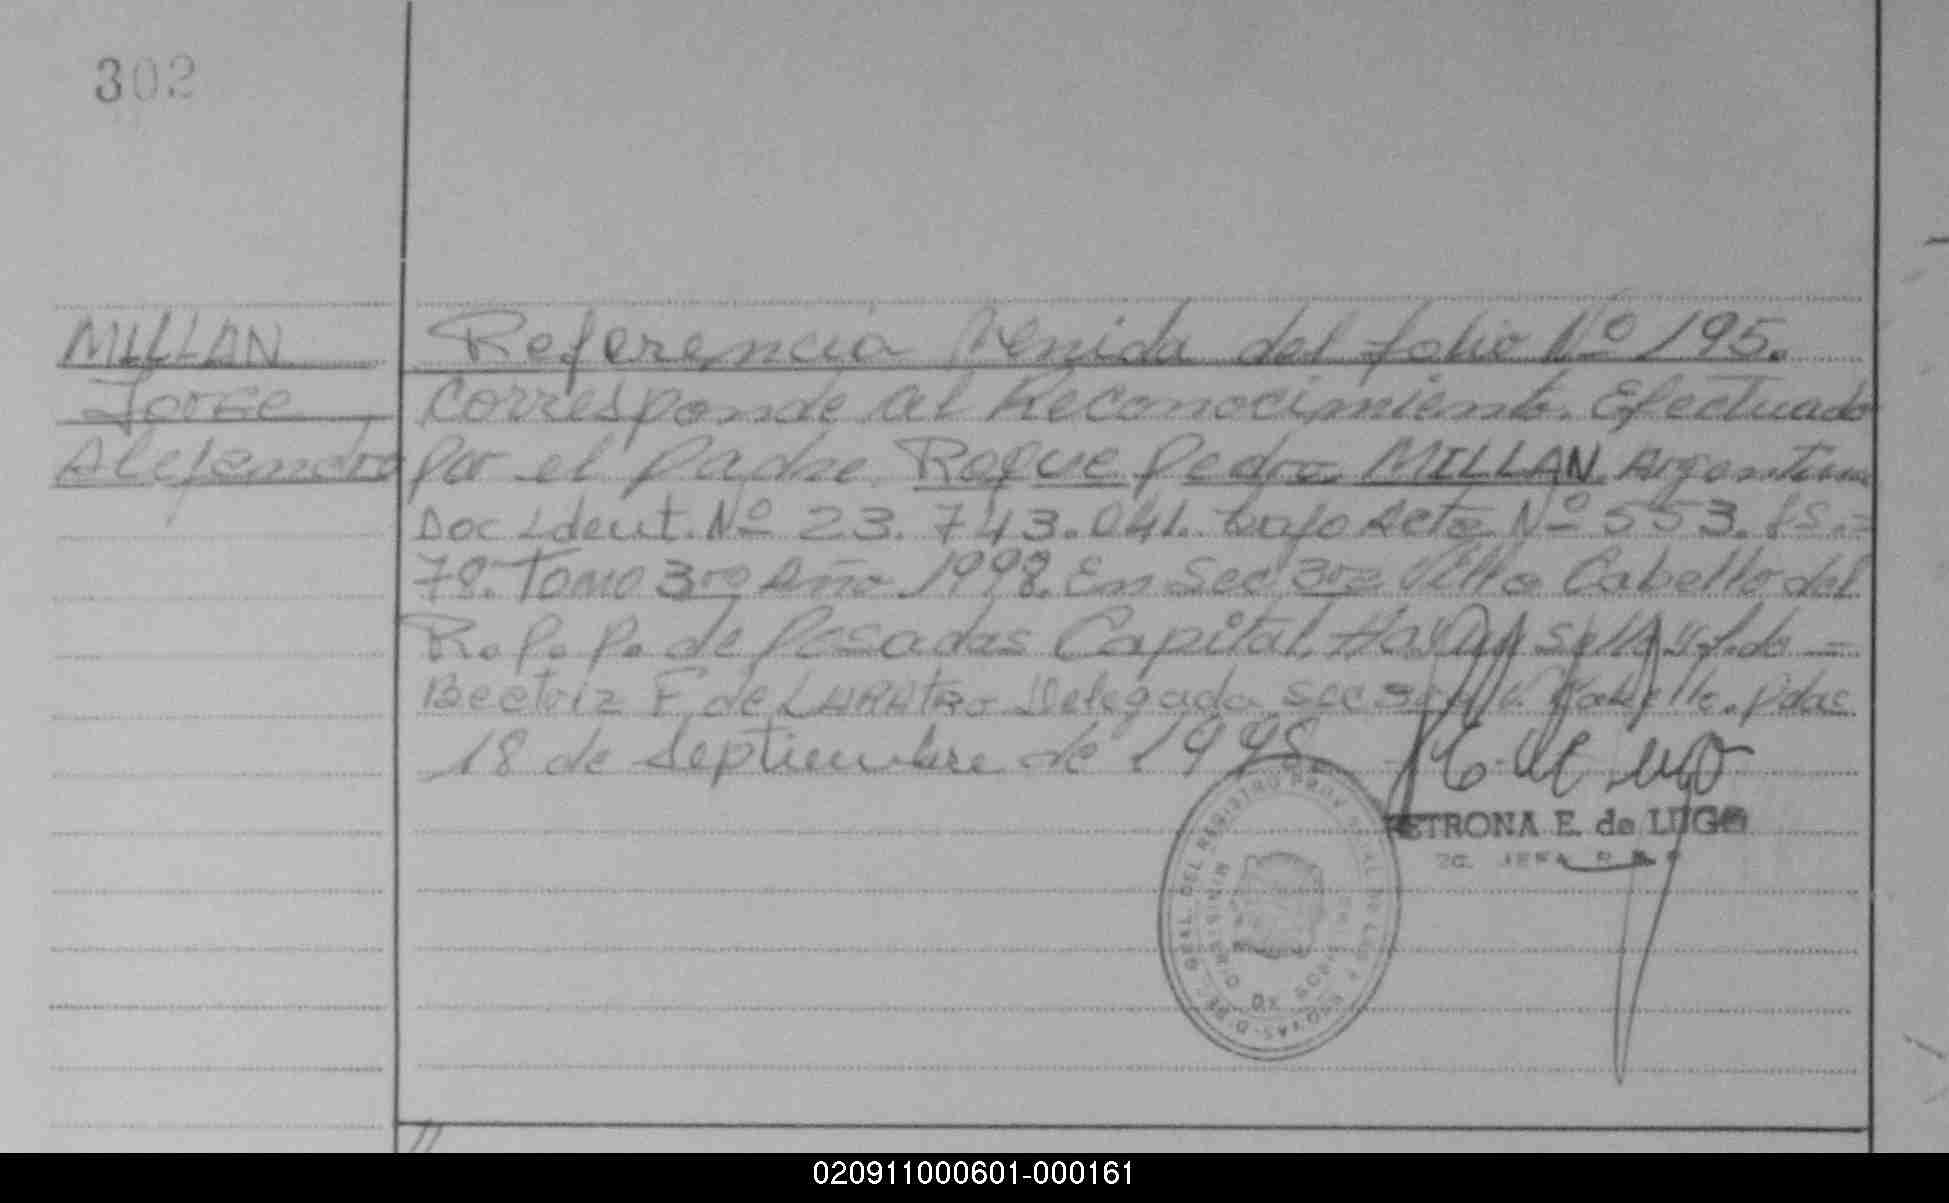 302
MILLAN
Jorge
Alejandro
Referencia Venida del folio Nº 195.
Corresponde al Reconocimiento. Efectuado
por el padre Roque Pedro MILLAN. Argentino
Doc Ident. Nº 23.743.041. bajo Acta Nº 553. fs.=
78. Tomo 3ro Año 1998. En Sec 3ra Villa Cabello del
R.P.P. de Posadas Capital. Hay un sello y fdo =
Beatriz F de Delegada Sec 3ra V. Cabello. Pdas
18 de Septiembre de 1998
STRONA E. de LUGO
JEFA
GRAL. DEL REGISTRO PROV
DE LAS P
020911000601-000161